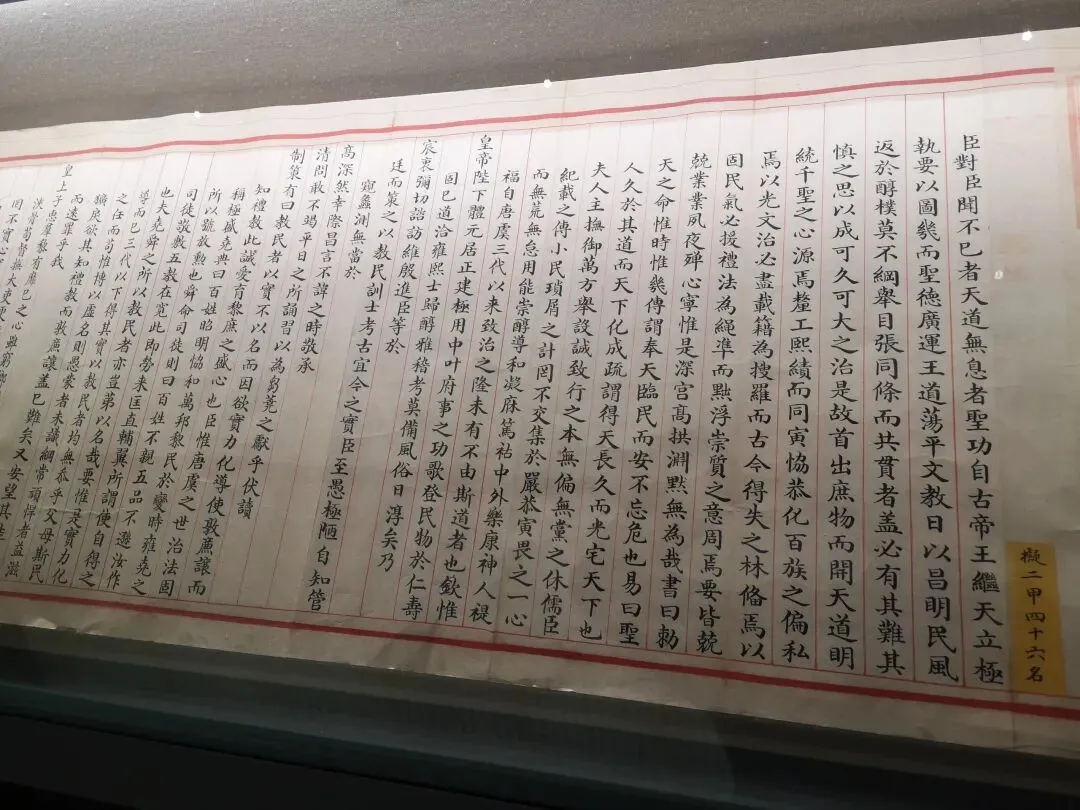 擬二甲四十六名
臣對臣聞不已者天道無息者聖功自古帝王繼天立極
執要以圖幾而聖德廣運王道蕩平文教日以昌明民風
返於醇樸莫不綱舉目張同條而共貫者盖必有其難其
慎之思以成可久可大之治是故首出庶物而開天道明
統千聖之心源焉釐工熙績而同寅恊恭化百族之偏私
焉以光文治必盡載籍為搜羅而古今得失之林俻焉以
固民氣必授禮法為繩凖而黜浮崇質之意周焉要皆兢
兢業業夙夜殫心寧惟是深宮髙拱淵默無為哉書曰勅
天之命惟時惟幾傳謂奉天臨民而安不忘危也易曰聖
人久於其道而天下化成疏謂得天長久而光宅天下也
夫人主撫御萬方舉設誠致行之本無偏無黨之休儒臣
紀載之傳小民瑣屑之計罔不交集於嚴恭寅畏之一心
而無荒無怠用能崇醇導和凝庥篤祜中外樂康神人禔
福自唐虞三代以来致治之隆未有不由斯道者也欽惟
皇帝陛下體元居正建極用中叶府事之功歌登民物於仁壽
固已道洽雍熙士歸醇雅稽考莫備風俗日淳矣乃
宸衷彌切諮訪維殷進臣等於
廷而策之以教民訓士考古宜今之實臣至愚極陋自知管
窺蠡測無當於
髙深然幸際昌言不諱之時敬承
清問敢不竭平日之所誦習以為芻蕘之獻乎伏讀
制策有曰教民者以實不以名而因欲實力化導使敦廉讓而
知禮教此誠愛育黎庶之盛心也臣惟唐虞之世治法固
稱極盛堯典曰百姓昭明協和萬邦黎民於變時雍堯之
所以號放勲也舜命司徒則曰百姓不親五品不遜汝作
司徒敬敷五教在寛此即勞来匡直輔翼所謂使自得之
也夫堯舜之所以教民者亦豈第以名哉要惟是實力化
導而已三代以下得其實以教民者均無孤乎父母斯民
之任而苟惟博以虛名則愚蒙者未識綱常頑悍者益滋
獷戾欲其知禮教而敦廉讓盖已難矣又安望其
而遠罪乎我
皇上子惠羣黎有靡已之心雖窮